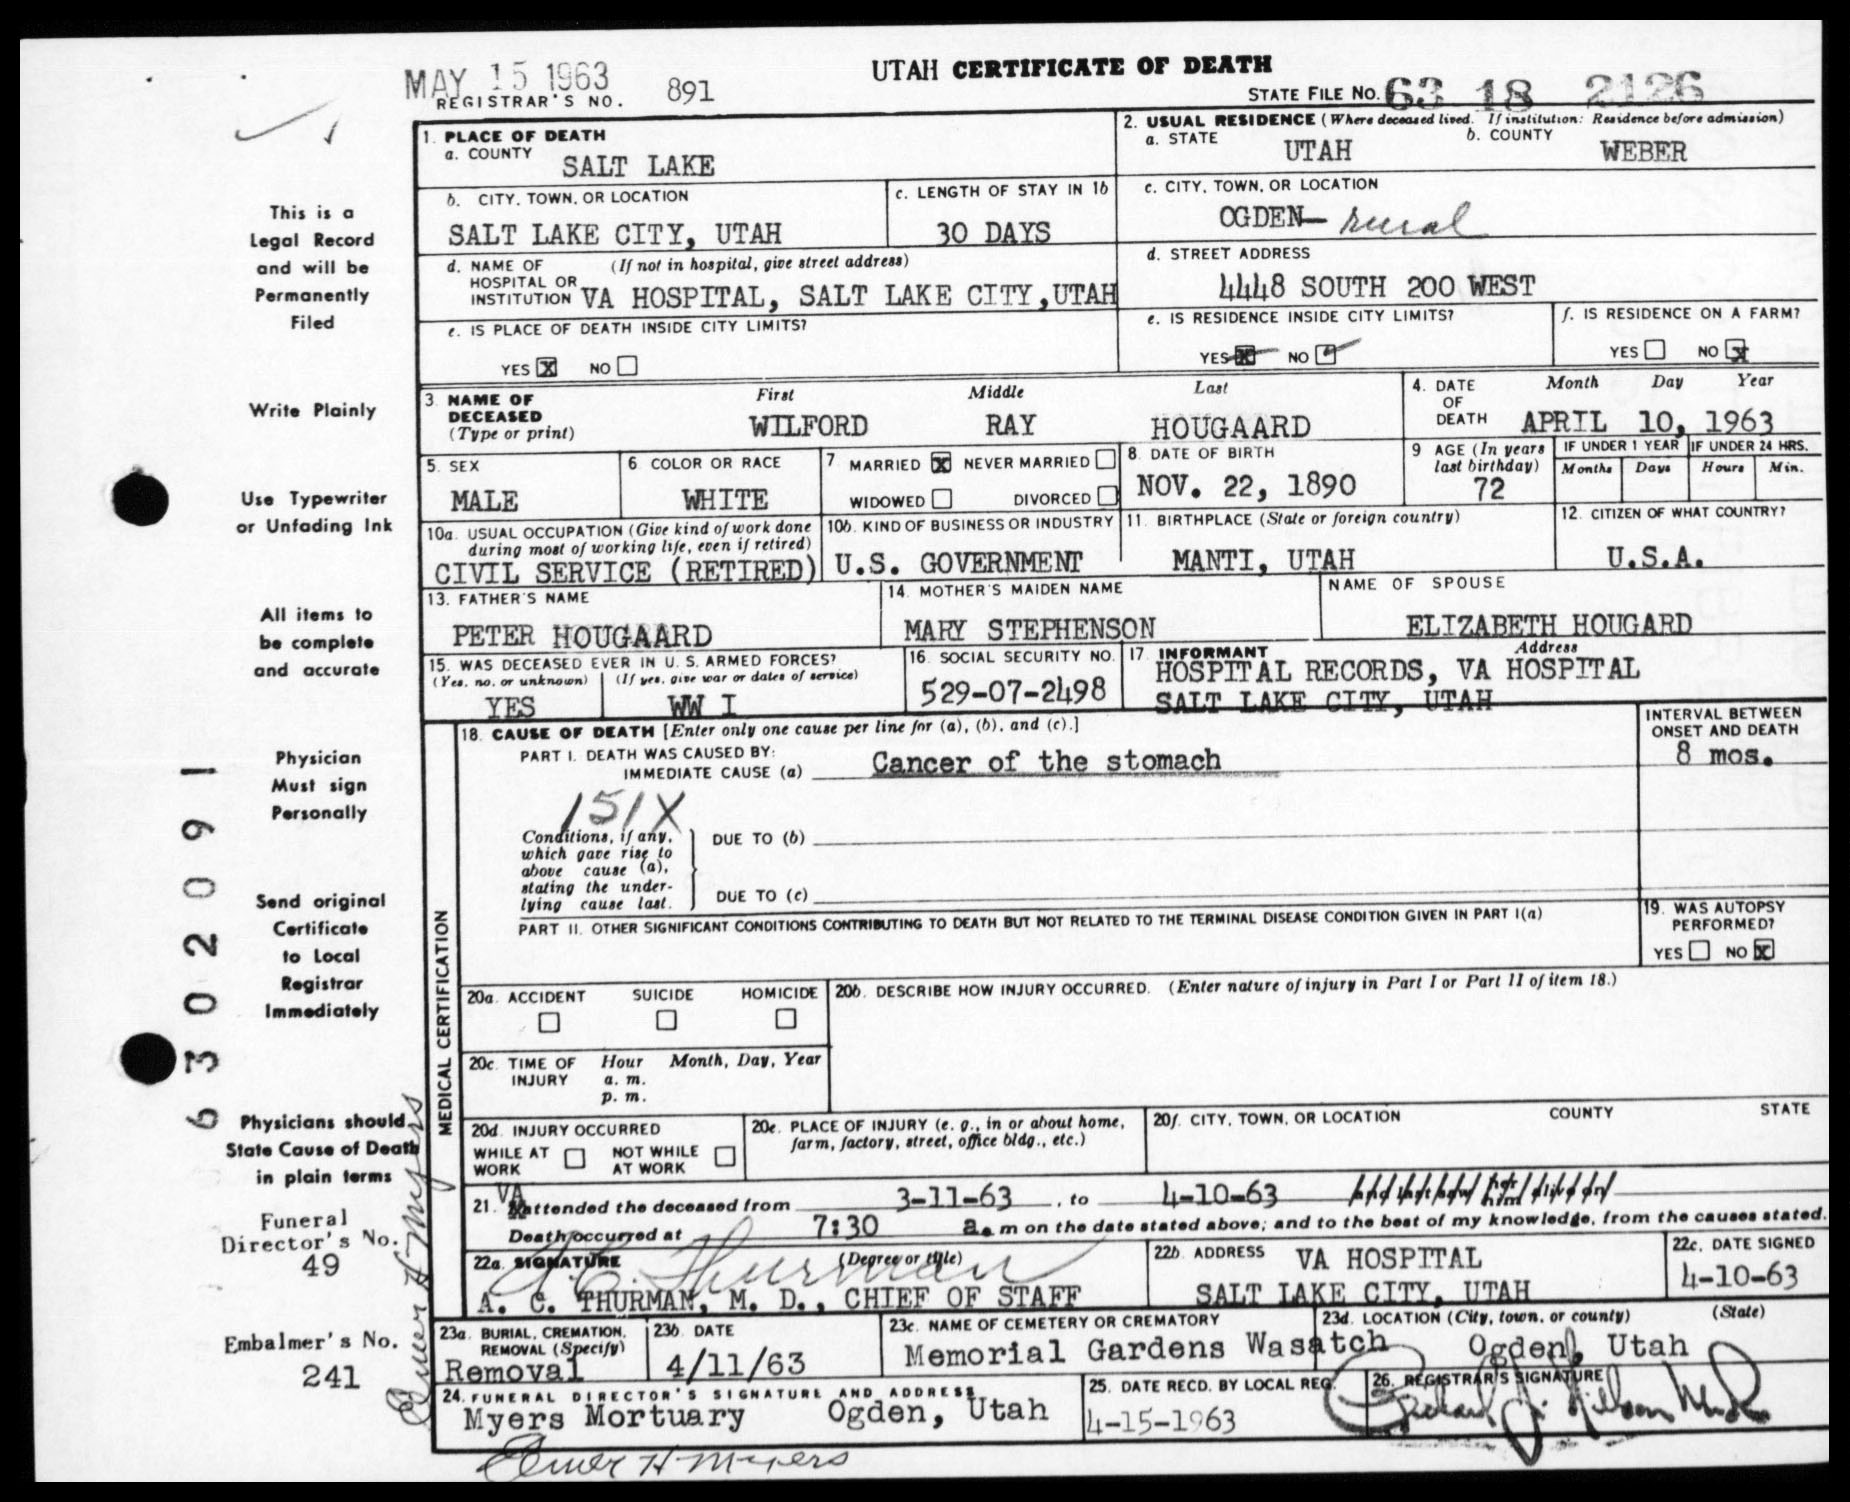 MAY 15 1963
UTAH CERTIFICATE OF DEATH
REGISTRAR'S NO. 891
STATE FILE NO. 63 18 2126
1. PLACE OF DEATH
a. COUNTY
SALT LAKE
2. USUAL RESIDENCE (Where deceased lived. If institution: Residence before admission)
a. STATE UTAH b. COUNTY WEBER
b. CITY, TOWN, OR LOCATION
SALT LAKE CITY, UTAH
c. LENGTH OF STAY IN 1b
30 DAYS
c. CITY, TOWN, OR LOCATION
OGDEN— rural
d. NAME OF (If not in hospital, give street address)
HOSPITAL OR
INSTITUTION VA HOSPITAL, SALT LAKE CITY, UTAH
d. STREET ADDRESS
4448 SOUTH 200 WEST
e. IS PLACE OF DEATH INSIDE CITY LIMITS?
YES X NO
e. IS RESIDENCE INSIDE CITY LIMITS?
YES X NO ✓
f. IS RESIDENCE ON A FARM?
YES NO X
3. NAME OF DECEASED
(Type or print)
First Middle Last
WILFORD RAY HOUGAARD
4. DATE OF DEATH
Month Day Year
APRIL 10, 1963
5. SEX
MALE
6. COLOR OR RACE
WHITE
7. MARRIED X NEVER MARRIED
WIDOWED DIVORCED
8. DATE OF BIRTH
NOV. 22, 1890
9 AGE (In years
last birthday)
72
IF UNDER 1 YEAR
Months Days
IF UNDER 24 HRS.
Hours Min.
10a. USUAL OCCUPATION (Give kind of work done
during most of working life, even if retired)
CIVIL SERVICE (RETIRED)
10b. KIND OF BUSINESS OR INDUSTRY
U.S. GOVERNMENT
11. BIRTHPLACE (State or foreign country)
MANTI, UTAH
12. CITIZEN OF WHAT COUNTRY?
U.S.A.
13. FATHER'S NAME
PETER HOUGAARD
14. MOTHER'S MAIDEN NAME
MARY STEPHENSON
NAME OF SPOUSE
ELIZABETH HOUGARD
15. WAS DECEASED EVER IN U. S. ARMED FORCES?
(Yes, no, or unknown) (If yes, give war or dates of service)
YES WW I
16. SOCIAL SECURITY NO.
529-07-2498
17. INFORMANT Address
HOSPITAL RECORDS, VA HOSPITAL
SALT LAKE CITY, UTAH
MEDICAL CERTIFICATION
18. CAUSE OF DEATH [Enter only one cause per line for (a), (b), and (c).]
PART I. DEATH WAS CAUSED BY:
IMMEDIATE CAUSE (a) Cancer of the stomach
INTERVAL BETWEEN
ONSET AND DEATH
8 mos.
151X
Conditions, if any,
which gave rise to
above cause (a),
stating the under-
lying cause last.
DUE TO (b)
DUE TO (c)
PART II. OTHER SIGNIFICANT CONDITIONS CONTRIBUTING TO DEATH BUT NOT RELATED TO THE TERMINAL DISEASE CONDITION GIVEN IN PART I(a)
19. WAS AUTOPSY
PERFORMED?
YES NO X
20a. ACCIDENT SUICIDE HOMICIDE
20b. DESCRIBE HOW INJURY OCCURRED. (Enter nature of injury in Part I or Part II of item 18.)
20c. TIME OF INJURY
Hour Month, Day, Year
a. m.
p. m.
20d. INJURY OCCURRED
WHILE AT WORK NOT WHILE AT WORK
20e. PLACE OF INJURY (e. g., in or about home,
farm, factory, street, office bldg., etc.)
20f. CITY, TOWN, OR LOCATION COUNTY STATE
21. VA attended the deceased from 3-11-63, to 4-10-63 and last saw her him alive on
Death occurred at 7:30 a. m on the date stated above; and to the best of my knowledge, from the causes stated.
22a. SIGNATURE (Degree or title)
A C Thurman
A. C. THURMAN, M. D., CHIEF OF STAFF
22b. ADDRESS VA HOSPITAL
SALT LAKE CITY, UTAH
22c. DATE SIGNED
4-10-63
23a. BURIAL, CREMATION,
REMOVAL (Specify)
Removal
23b. DATE
4/11/63
23c. NAME OF CEMETERY OR CREMATORY
Memorial Gardens Wasatch
23d. LOCATION (City, town, or county) (State)
Ogden, Utah
24. FUNERAL DIRECTOR'S SIGNATURE AND ADDRESS
Myers Mortuary Ogden, Utah
Elmer H Myers
25. DATE RECD. BY LOCAL REG.
4-15-1963
26. REGISTRAR'S SIGNATURE
This is a
Legal Record
and will be
Permanently
Filed
Write Plainly
Use Typewriter
or Unfading Ink
All items to
be complete
and accurate
Physician
Must sign
Personally
Send original
Certificate
to Local
Registrar
Immediately
Physicians should
State Cause of Death
in plain terms
Funeral
Director's No.
49
Embalmer's No.
241
Elmer H Myers
6302091